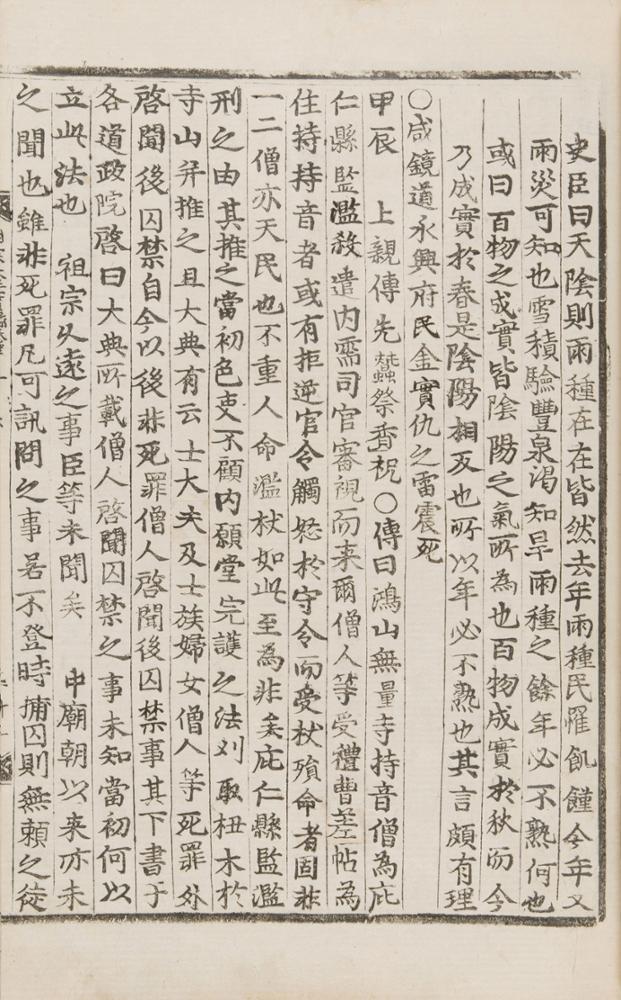 史臣曰天陰則雨種在在皆然去年雨種民罹飢饉今年又
雨災可知也雪積驗豐泉渴知旱雨種之餘年必不熟何也
或曰百物之成實皆陰陽之氣所為也百物成實於秋而今
乃成實於春是陰陽相反也所以年必不熟也其言頗有理
○咸鏡道永興府民金實仇之雷震死
甲辰 上親傳先蠶祭香祝○傳曰鴻山無量寺持音僧為庇
仁縣監濫殺遣內需司官審視而来爾僧人等受禮曹差帖為
住持持音者或有拒逆官令觸怒於守令而受杖殞命者固非
一二僧亦天民也不重人命濫杖如此至為非矣庇仁縣監濫
刑之由其推之當初色吏不顧內願堂完護之法刈取杻木於
寺山并推之且大典有云士大夫及士族婦女僧人等死罪外
啓聞後囚禁自今以後非死罪僧人啓聞後囚禁事其下書于
各道政院啓曰大典所載僧人啓聞囚禁之事未知當初何以
立此法也 祖宗久遠之事臣等未聞矣 中廟朝以来亦未
之聞也雖非死罪凡可訊問之事若不登時捕囚則無賴之徒